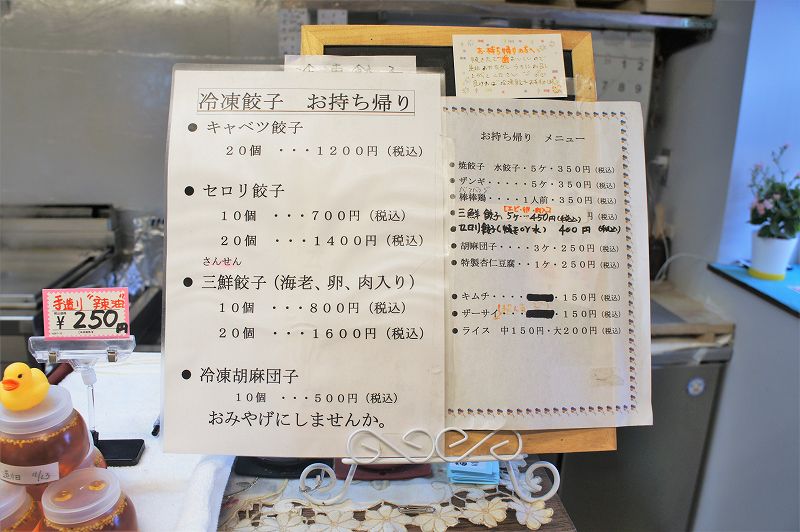 冷凍餃子　お持ち帰り
● キャベツ餃子
２０個　・・・１２００円（税込）
● セロリ餃子
１０個　・・・７００円（税込）
２０個　・・・１４００円（税込）
さんせん
● 三鮮餃子（海老、卵、肉入り）
１０個　・・・８００円（税込）
２０個　・・・１６００円（税込）
● 冷凍胡麻団子
１０個　・・・５００円（税込）
おみやげにしませんか。
お持ち帰りの方へ
お持ち帰り　メニュー
● 焼餃子　水餃子・５ケ・３５０円（税込）
● ザンギ・・・・・５ケ・３５０円（税込）
バンバンジー
● 棒棒鶏・・・・１人前・３５０円（税込）
[エビ・卵・肉入]
● 三鮮餃子・5ケ・・450円（税込）
● セロリ餃子(焼きor水) 400円（税込）
● 胡麻団子・・・・３ケ・２５０円（税込）
● 特製杏仁豆腐・・１ケ・２５０円（税込）
● キムチ・・１５０円（税込）
● ザーサイ・１５０円（税込）
● ライス　中１５０円・大２００円（税込）
手造り“辣油”
￥250円